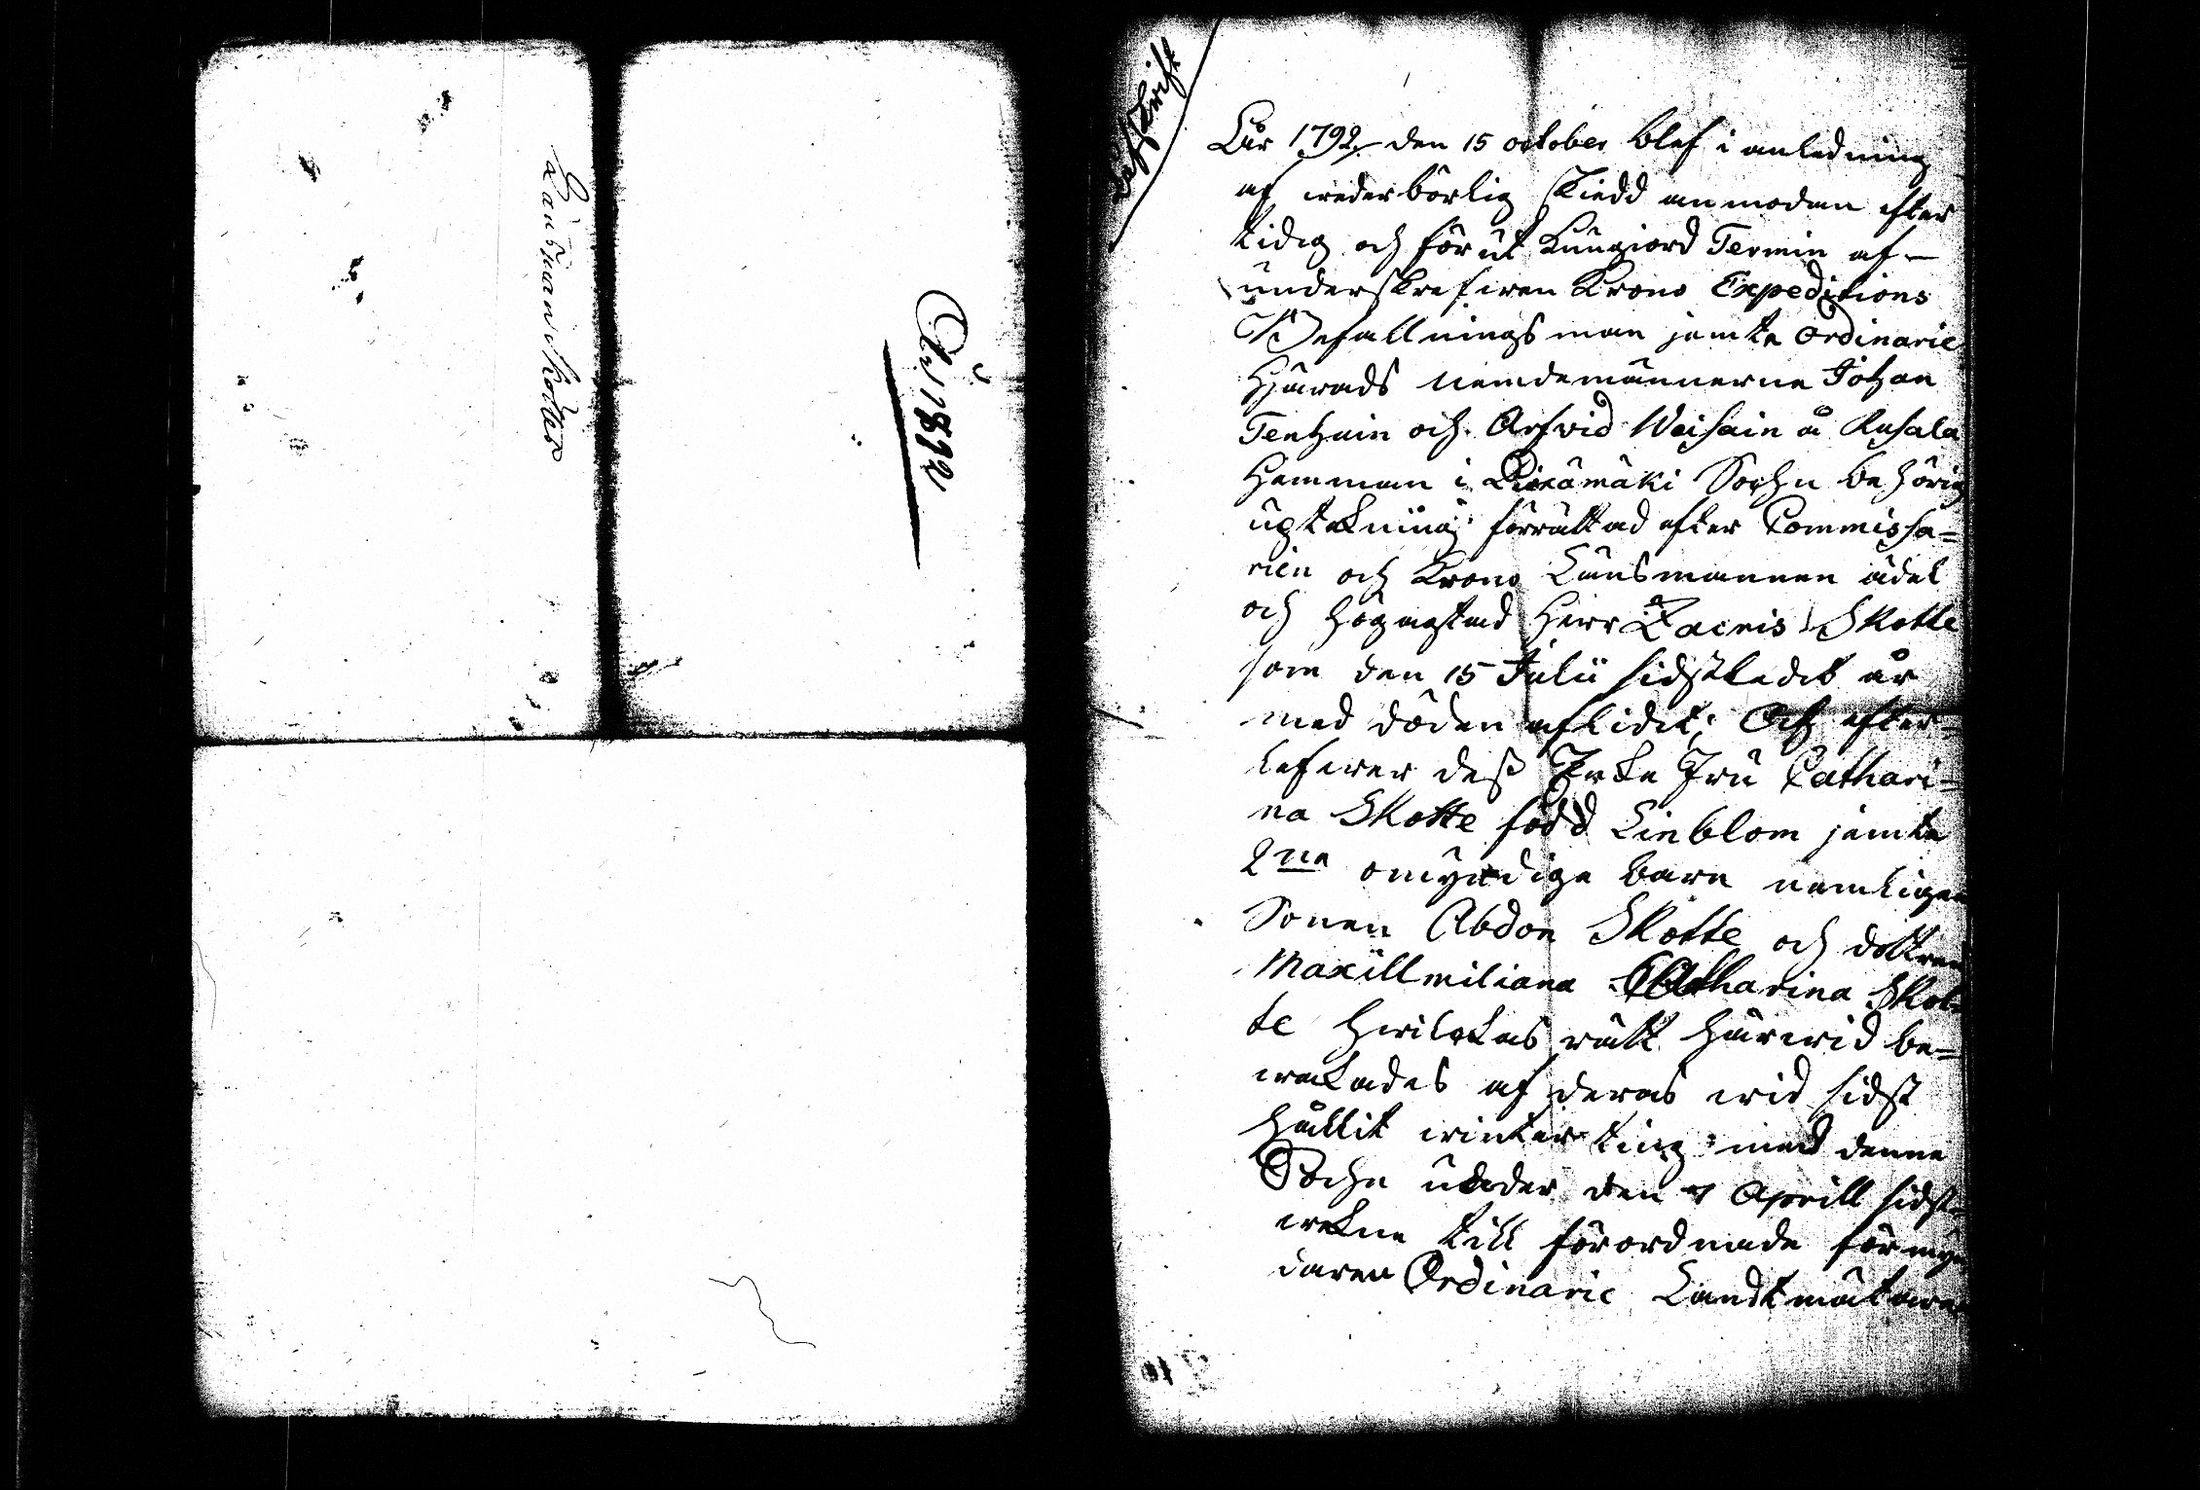 Länsman Skottes
År 1892
Afskrift
Åhr 1792 den 15 october blef i anledning
af wederbörlig skiedd anmodan efter
tidig och förut kungiord Termin af
underskrefwen Krono Expeditions
Befallningsman jemte Ordinarie
Härads nemdemännerne Johan
Tenhuin och Arfvid Weisain å Kusala
Hemman i Piexämäki Sochn behörig
upteckning förrättad efter Commissa=
rien och Krono Länsmannen ädel
och högagtad Herr Zacris Skotte
som den 15 Julii sidstledit år
med döden aflidit; Och efter=
lefwer dess Enka Fru Cathari=
na Skotte född Linblom jemte
2ne omyndige barn nemligen
Sonen Abdon Skotte och dottren
Maxillmiliana Catharina Skot=
te hwilckas rätt härwid be=
wakades af deras wid sidst
hållit winter ting med denne
Sochn under den 7 Aprill sidst=
wekne till förordnade förmyn
daren Ordinarie Landtmätaren